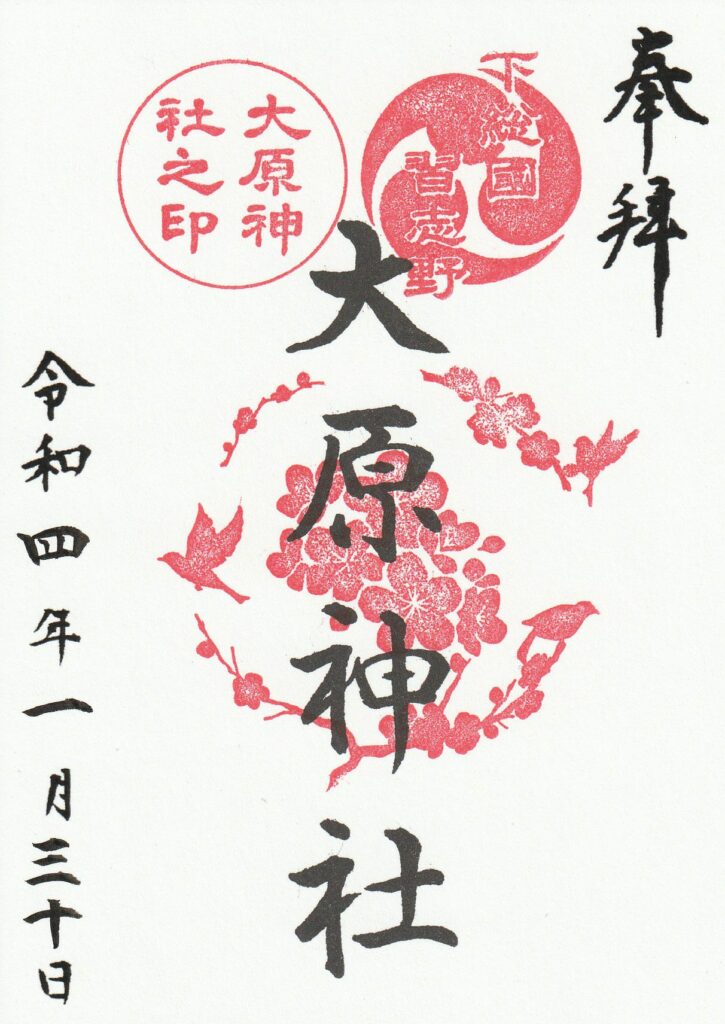 奉拝
下総國
習志野
大原神
社之印
大原神社
令和四年一月三十日